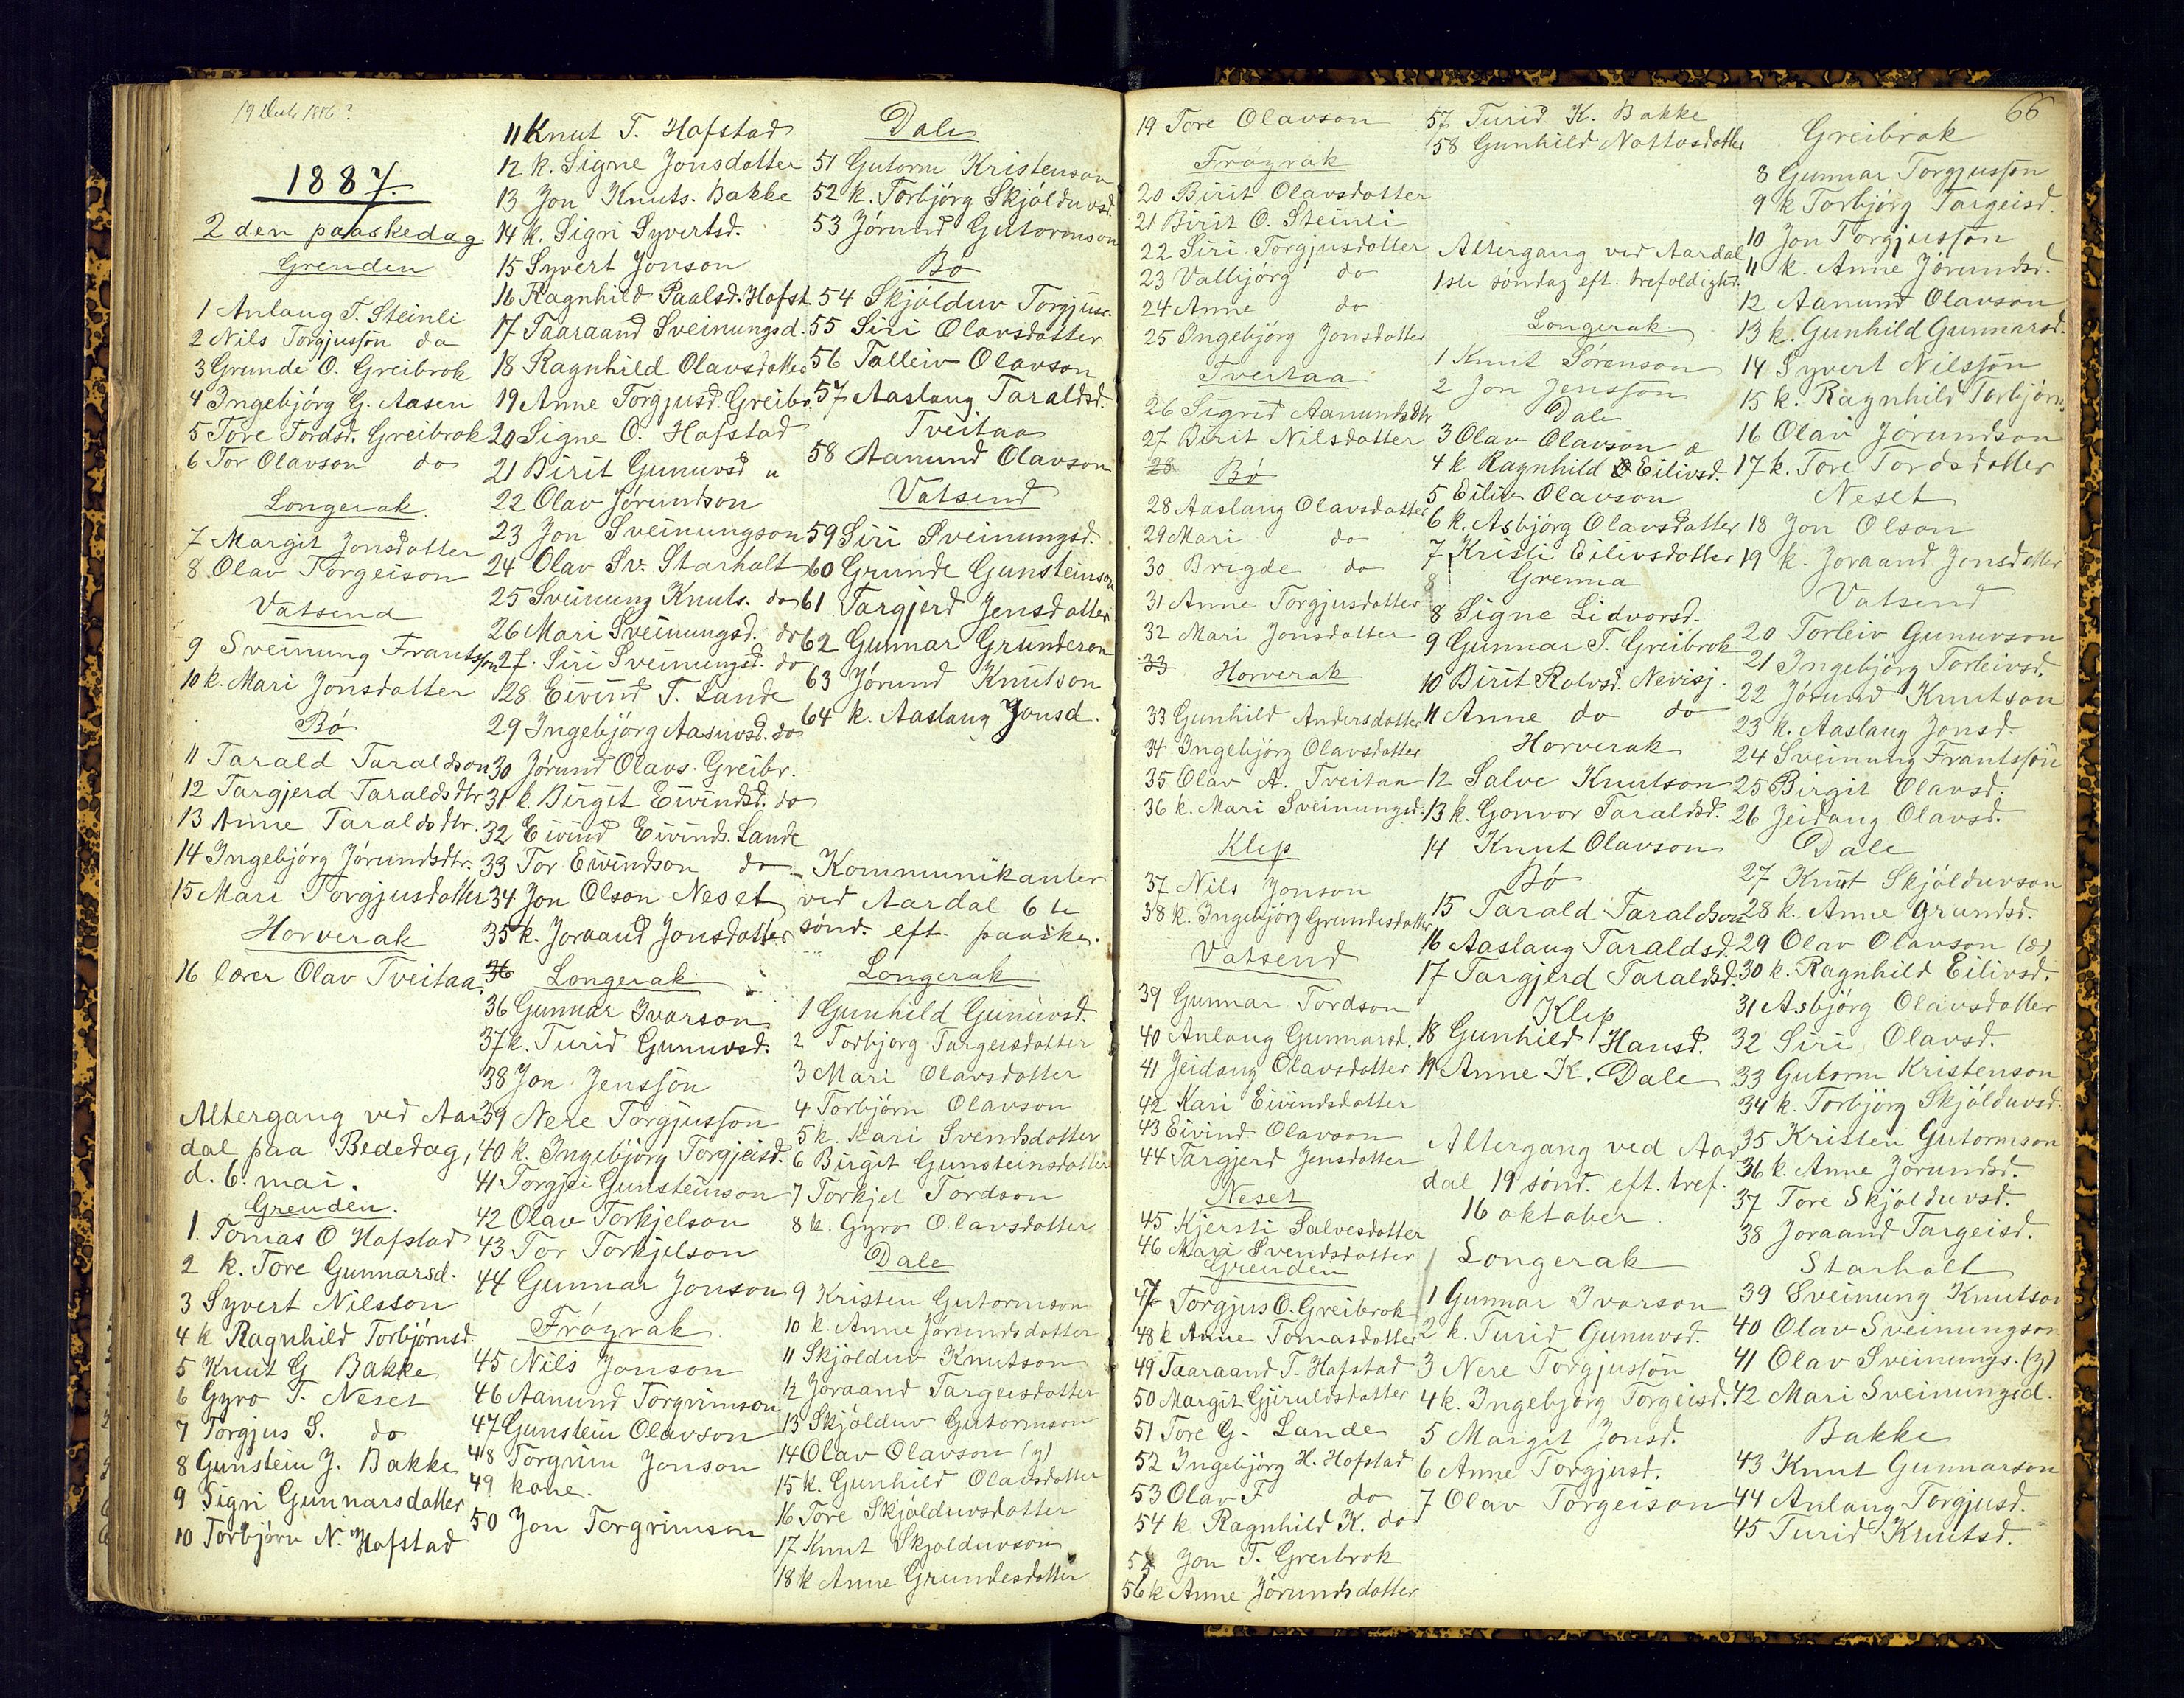 1887.
2 den paaskedag.
Grenden
1 Anlaug T. Steinli
2 Nils Torgjussøn do
3 Grunde O. Greibrok
4 Ingebjörg G. Aasen
5 Tore Tordsd. Greibrok
6 Tor Olavson do
Longerak.
7 Margit Jonsdatter
8 Olav Torgeison
Vatsend
9 Sveinung Frantssøn
10 k. Mari Jonsdatter
Bó
11 Tarald Taraldson
12 Targjerd Taraldsdtr.
13 Anne Taraldsdtr.
14 Ingebjörg Jórundsdtr.
15 Mari Torgjusdatter
Horverak
16 lærer Olav Tveitaa.
Altergang ved Aar
dal paa Bededag,
d. 6. mai.
Grenden.
1. Tomas O Hofstad
2 k. Tore Gunnarsd.
3 Syvert Nilsson
4 k Ragnhild Torbjörnsd.
5 Knut G Bakke
6 Gyro T. Neset
7 Torgjus S. do
8 Gunstein J. Bakke
9 Sigri Gunnarsdatter
10 Torbjörn N. Hofstad
11 Knut T. Hofstad
12 k. Signe Jonsdatter
13 Jon Knuts. Bakke
14 k. Sigri Syvertsd.
15 Syvert Jonson
16 Ragnhild Paalsd. Hofst.
17 Taaraand Sveinungsd.
18 Ragnhild Olavsdatter
19 Anne Torgjusd. Greibr.
20 Signe O. Hofstad
21 Birit Gunuvsd "
22 Olav Jórundson
23 Jon Sveinungson
24 Olav Sv. Starholt
25 Sveinung Knuts. do
26 Mari Sveinungsd. do
27. Siri Sveinungsd. do
28 Eivind T. Lande
29 Ingebjörg Aasuvsd. do
30 Jórund Olavs. Greibr.
31 k. Birgit Eivindsd. do
32 Eivind Eivinds. Lande
33 Tor Eivindson do
34 Jon Olson Neset
35 k. Joraand Jonsdatter
36 Longerak
36 Gunnar Ivarson
37 k. Turid Gunuvsd.
38 Jon Jenssøn
39 Nere Torgjussøn
40 k. Ingebjörg Torgjeisd.
41 Torgjei Gunsteinson
42 Olav Torkjelson
43 Tor Torkjelson
44 Gunnar Jonson
Fróyrak
45 Nils Jonson
46 Aanund Torgrimson
47 Gunstein Olavson
48 Torgrim Jonson
49 kone.
50 Jon Torgrimson
Dale
51 Gutorm Kristenson
52 k. Torbjörg Skjólduvsd.
53 Jórund Gutormson
Bó
54 Skjólduv Torgjuss.
55 Siri Olavsdatter
56 Talleiv Olavson
57 Aaslaug Taraldsd.
Tveitaa
58 Aanund Olavson
Vatsend
59 Siri Sveinungsd.
60 Grunde Gunsteinson
61 Targjerd Jensdatter
62 Gunnar Grunderson
63 Jórund Knutson
64 k. Aaslaug Jonsd.
Kommunikanter
ved Aardal 6te
sønd. eft. paaske.
Longerak
1 Gunhild Gunuvsd.
2 Torbjorg Targeisdatter
3 Mari Olavsdatter
4 Torbjörn Olavson
5 k. Kari Svendsdatter
6 Birgit Gunsteinsdatter
7 Torkjel Tordson
8 k. Gyro Olavsdatter
Dale
9 Kristen Gutormson
10 k. Anne Jórundsdatter
11 Skjolduv Knutson
12 Joraand Targeisdatter
13 Skjólduv Gutormson
14 Olav Olavson (y)
15 k. Gunhild Olavsdatter
16 Tore Skjólduvsdatter
17 Knut Skjolduvson
18 k Anne Grundesdatter
66
19 Tore Olavson
Fróyrak
20 Birit Olavsdatter
21 Birit O. Steinli
22 Siri Torgjusdatter
23 Valbjörg do
24 Anne do
25 Ingebjörg Jonsdatter
Tveitaa
26 Sigrid Aanundsdtr
27 Birit Nilsdatter
28 Bó
28 Aaslaug Olavsdatter
29 Mari do
30 Brigde do
31 Anne Torgjusdatter
32 Mari Jonsdatter
33 Horverak
33 Gunhild Andersdatter
34 Ingebjörg Olavsdatter
35 Olav A. Tveitaa
36 k. Mari Sveinungsd.
Klep
37 Nils Jonson
38 k. Ingebjörg Grundesdatter
Vatsend
39 Gunnar Tordson
40 Anlaug Gunnarsd.
41 Jeidaug Olavsdatter
42 Kari Eivindsdatter
43 Eivind Olavson
44 Targjerd Jensdatter
Neset
45 Kjersti Salvesdatter
46 Mari Svendsdatter
Grenden
47 Torgjus O. Greibrok
48 k Anne Tomasdatter
49 Taaraand T. Hofstad
50 Margit Gjeruldsdatter
51 Tore G. Lande
52 Ingebjörg H. Hofstad
53 Olav F do
54 k Ragnhild K. do
55 Jon T. Greibrok
56 k Anne Jórundsdatter
57 Turid K. Bakke
58 Gunhild Nottosdatter
Altergang ved Aardal
1ste søndag eft. trefoldighd.
Longerak
1 Knut Sørenson
2 Jon Jenssøn
Dale
3 Olav Olavson e
4 k Ragnhild Eilivsd.
5 Eiliv Olavson
6 k. Asbjörg Olavsdatter
7 Kristi Eilivsdatter
8 Grenna
8 Signe Lidvorsd.
9 Gunnar T. Greibrok
10 Birit Rolvsd. Nevisj.
11 Anne do do
Horverak
12 Salve Knutson
13 k. Gonvor Taraldsd.
14 Knut Olavson
Bó
15 Tarald Taraldson
16 Aaslaug Taraldsd.
17 Targjerd Taraldsd.
Klep
18 Gunhild Hansd.
19 Anne K. Dale
Altergang ved Aar
dal 19 sónd. eft. tref.
16 oktober.
Longerak
1 Gunnar Ivarson
2 k. Turid Gunuvsd.
3 Nere Torgjussøn
4 k. Ingebjørg Torgeisd.
5 Margit Jonsd.
6 Anne Torgjusd.
7 Olav Torgeison
Greibrok
8 Gunnar Torgjussøn
9 k Torbjörg Targeisd.
10 Jon Torgjussøn
11 k. Anne Jórundsd.
12 Aanund Olavson
13 k. Gunhild Gunnarsd.
14 Syvert Nilssøn
15 k. Ragnhild Torbjörns
16 Olav Jórundson
17 k. Tore Tordsdatter
Neset
18 Jon Olson
19 k. Joraand Jonsdatter
Vatsend
20 Torleiv Gunuvson
21 Ingebjörg Torleivsd.
22 Jórund Knutson
23 k. Aaslaug Jonsd.
24 Sveinung Frantssøn
25 Birgit Olavsd.
26 Jeidaug Olavsd.
Dale
27 Knut Skjólduvson
28 k. Anne Grundsd.
29 Olav Olavson (e)
30 k. Ragnhild Eilivsd.
31 Asbjörg Olavsdatter
32 Siri Olavsd.
33 Gutorm Kristenson
34 k. Torbjörg Skjólduvsd.
35 Kristen Gutormson
36 k. Anne Jorundsd.
37 Tore Skjólduvsd.
38 Joraand Targeisd.
Starholt
39 Sveinung Knutson
40 Olav Sveinungson
41 Olav Sveinungs. (y)
42 Mari Sveinungsd.
Bakke
43 Knut Gunnarson
44 Anlaug Torgjusd.
45 Turid Knutsd.